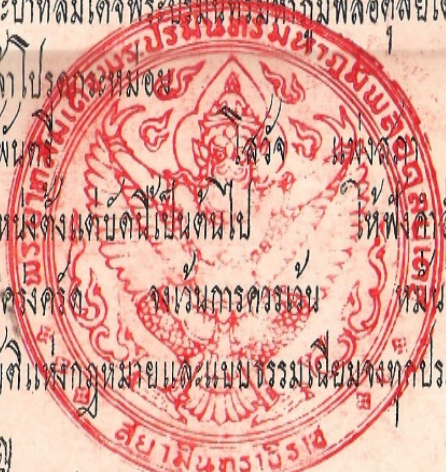 พระบาทสมเด็จพระปรมินทรมหาภูมิพลอดุลยเดช
โปรดกระหม่อม
พันตรี โสวัจ แห่งสภา
ตั้งแต่บัดนี้เป็นต้นไป ให้ฟัง
เคร่งครัด จงเว้นการควรเว้น หมั่น
แห่งกฎหมายและแบบธรรมเนียมจงทุกประ
สยามินทราธิราช